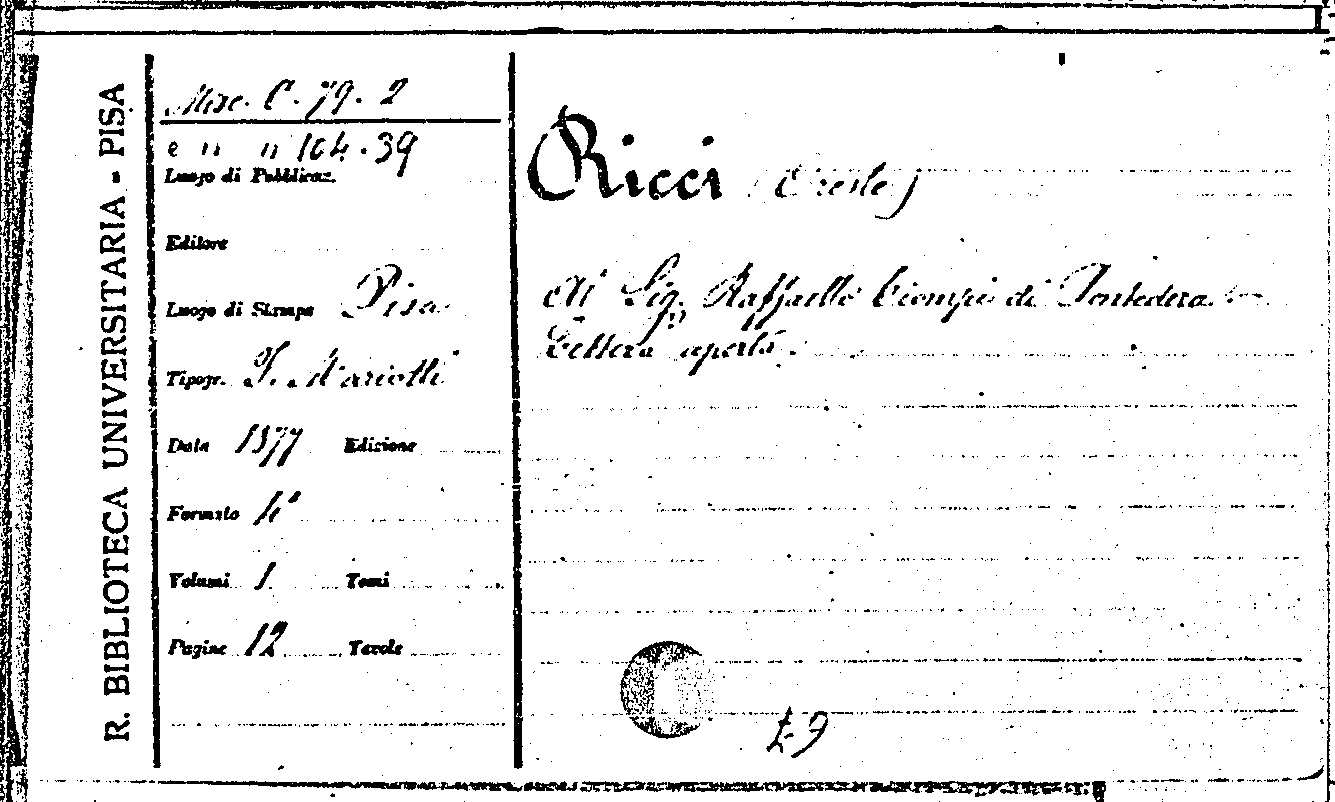 R. BIBLIOTECA UNIVERSITARIA - PISA
Misc. C. 79. 2
e " " 104. 39
Luogo di Pubblicaz.
Editore
Luogo di Stampa Pisa
Tipogr. F. Mariotti
Data 1877 Edizione
Formato 4°
Volumi 1 Tomi
Pagine 12 Tavole
Ricci (Oreste)
Al Sig. Raffaello Ciompi di Pontedera.
Lettera aperta.